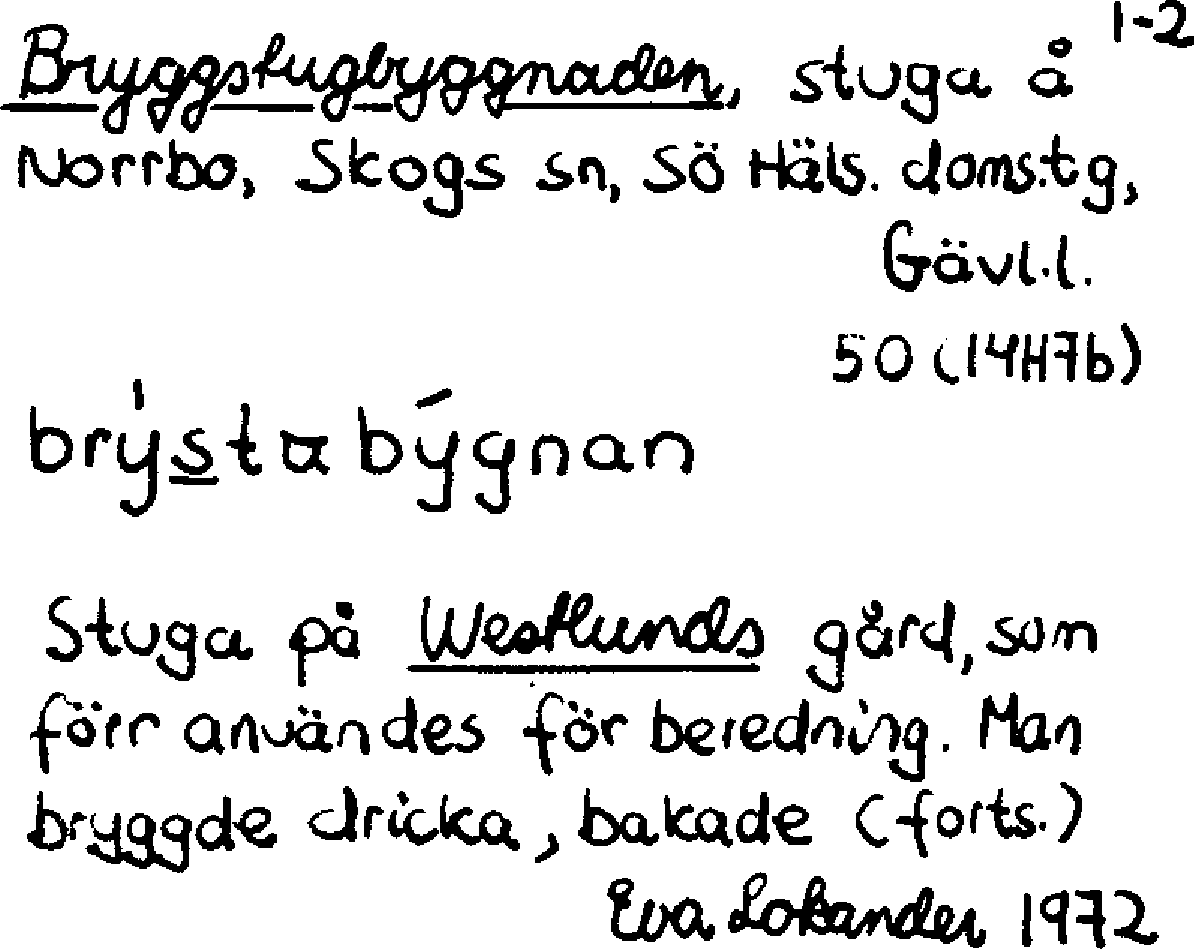 1-2
Bryggstugbyggnaden, stuga å
Norrbo, Skogs sn, Sö Häls. doms.tg,
Gävl.l.
50 (14H7b)
brýstɑbýgnan
Stuga på Westlunds gård, som
förr användes för beredning. Man
bryggde dricka, bakade (forts.)
Eva Lokander 1972